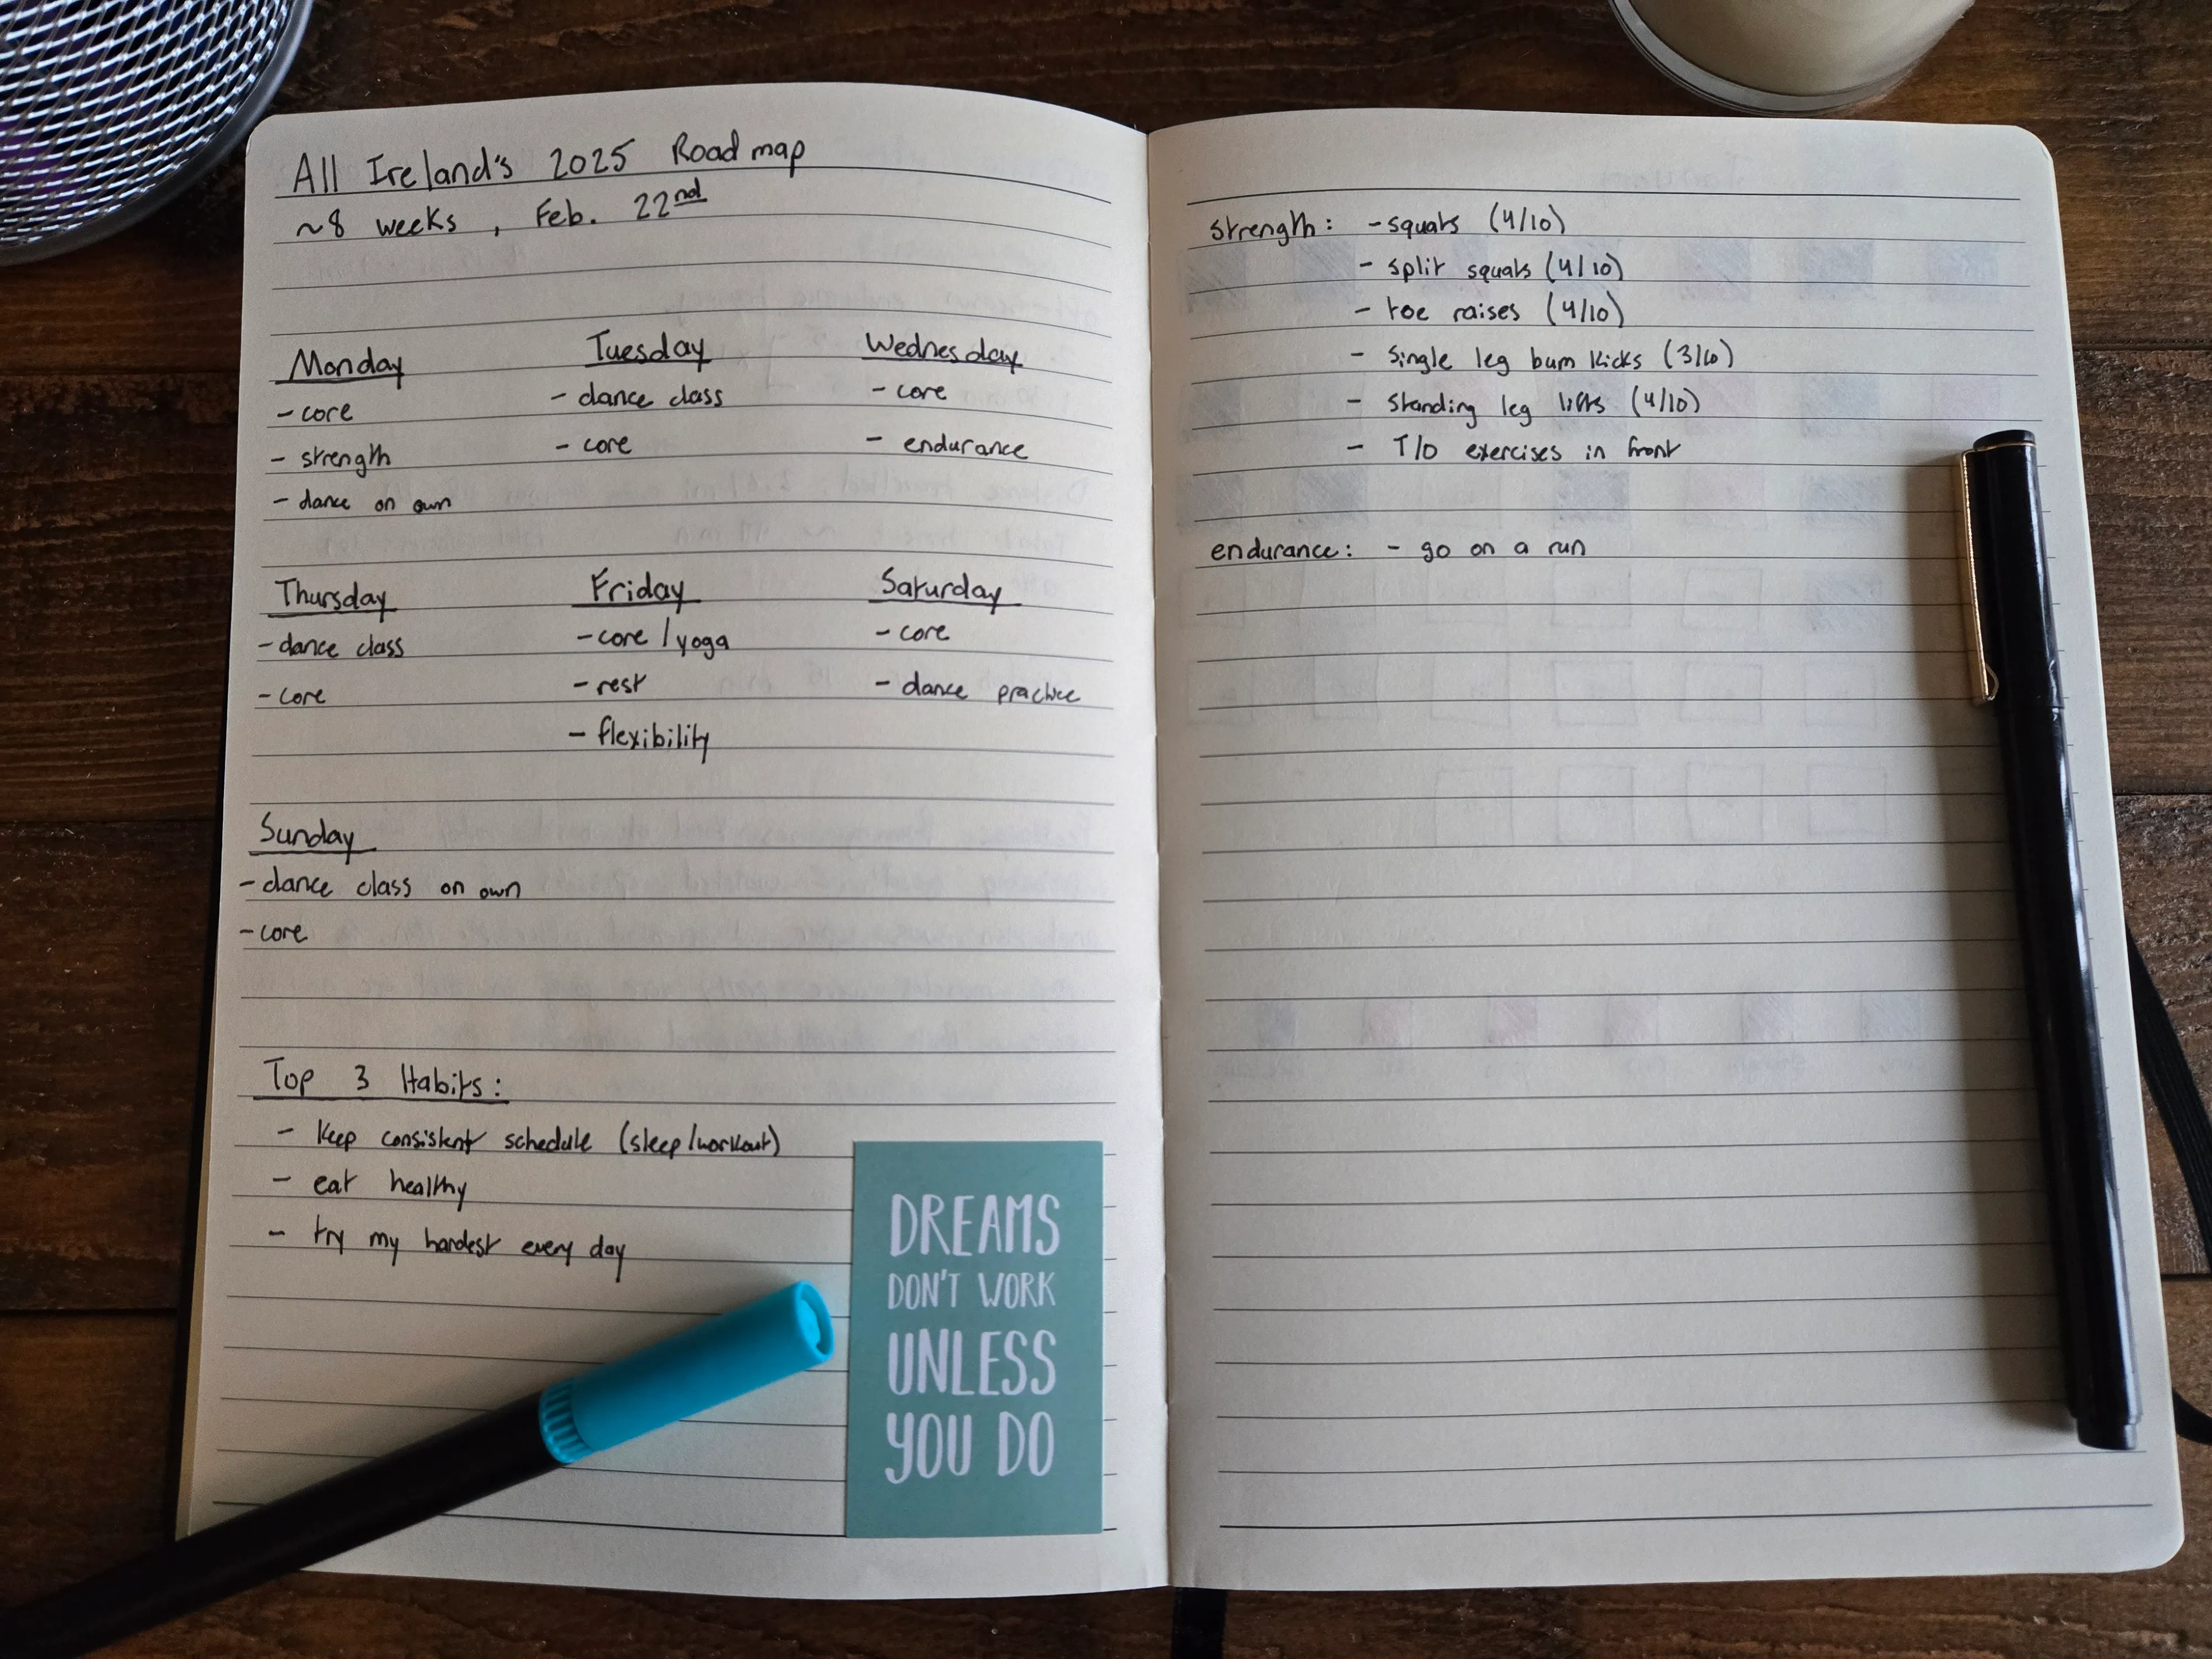 All Ireland's 2025 Road map
~8 weeks, Feb. 22nd
Monday
- core
- strength
- dance on own
Tuesday
- dance class
- core
Wednesday
- core
- endurance
Thursday
- dance class
- core
Friday
- core / yoga
- rest
- flexibility
Saturday
- core
- dance practice
Sunday
- dance class on own
- core
Top 3 Habits:
- keep consistent schedule (sleep/workout)
- eat healthy
- try my hardest every day
DREAMS
DON'T WORK
UNLESS
YOU DO
strength: - squats (4/10)
- split squats (4/10)
- toe raises (4/10)
- single leg bum kicks (3/10)
- standing leg lifts (4/10)
- T/O exercises in front
endurance: - go on a run